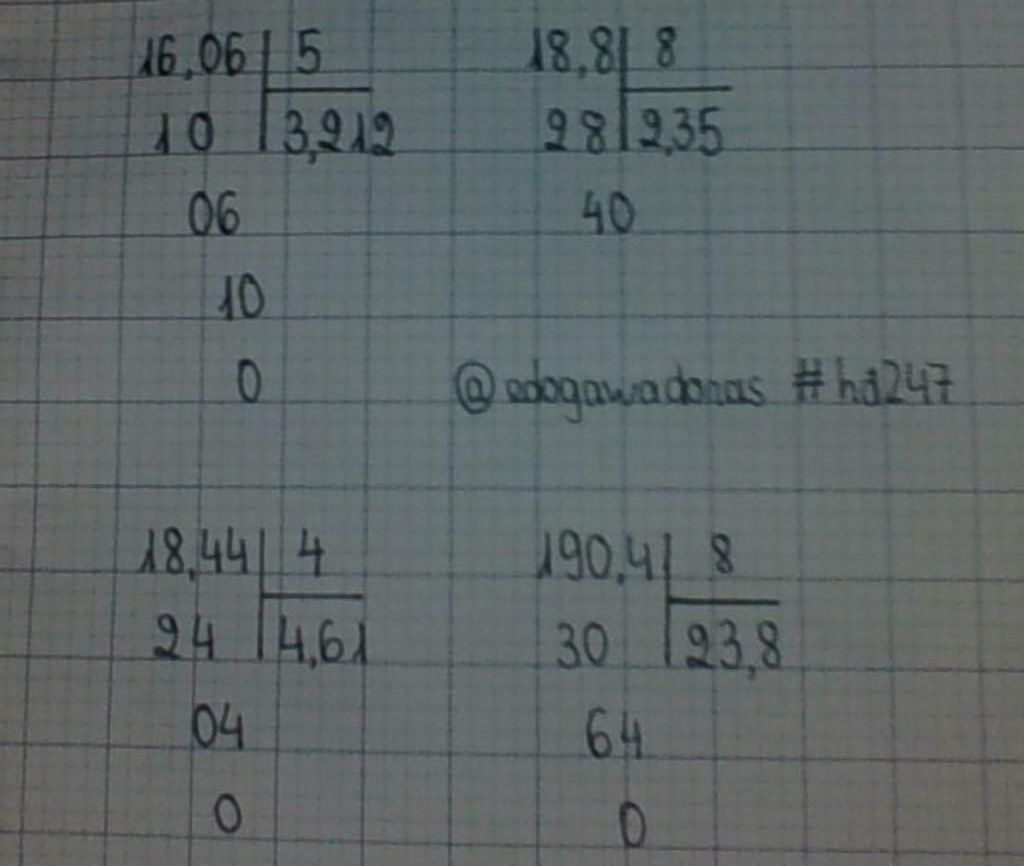 16,06 5 18,8 8
10 3,212 28 2,35
06 40
10
0 @edogawadonas #hd247
18,44 4 190,4 8
24 4,61 30 23,8
04 64
0 0